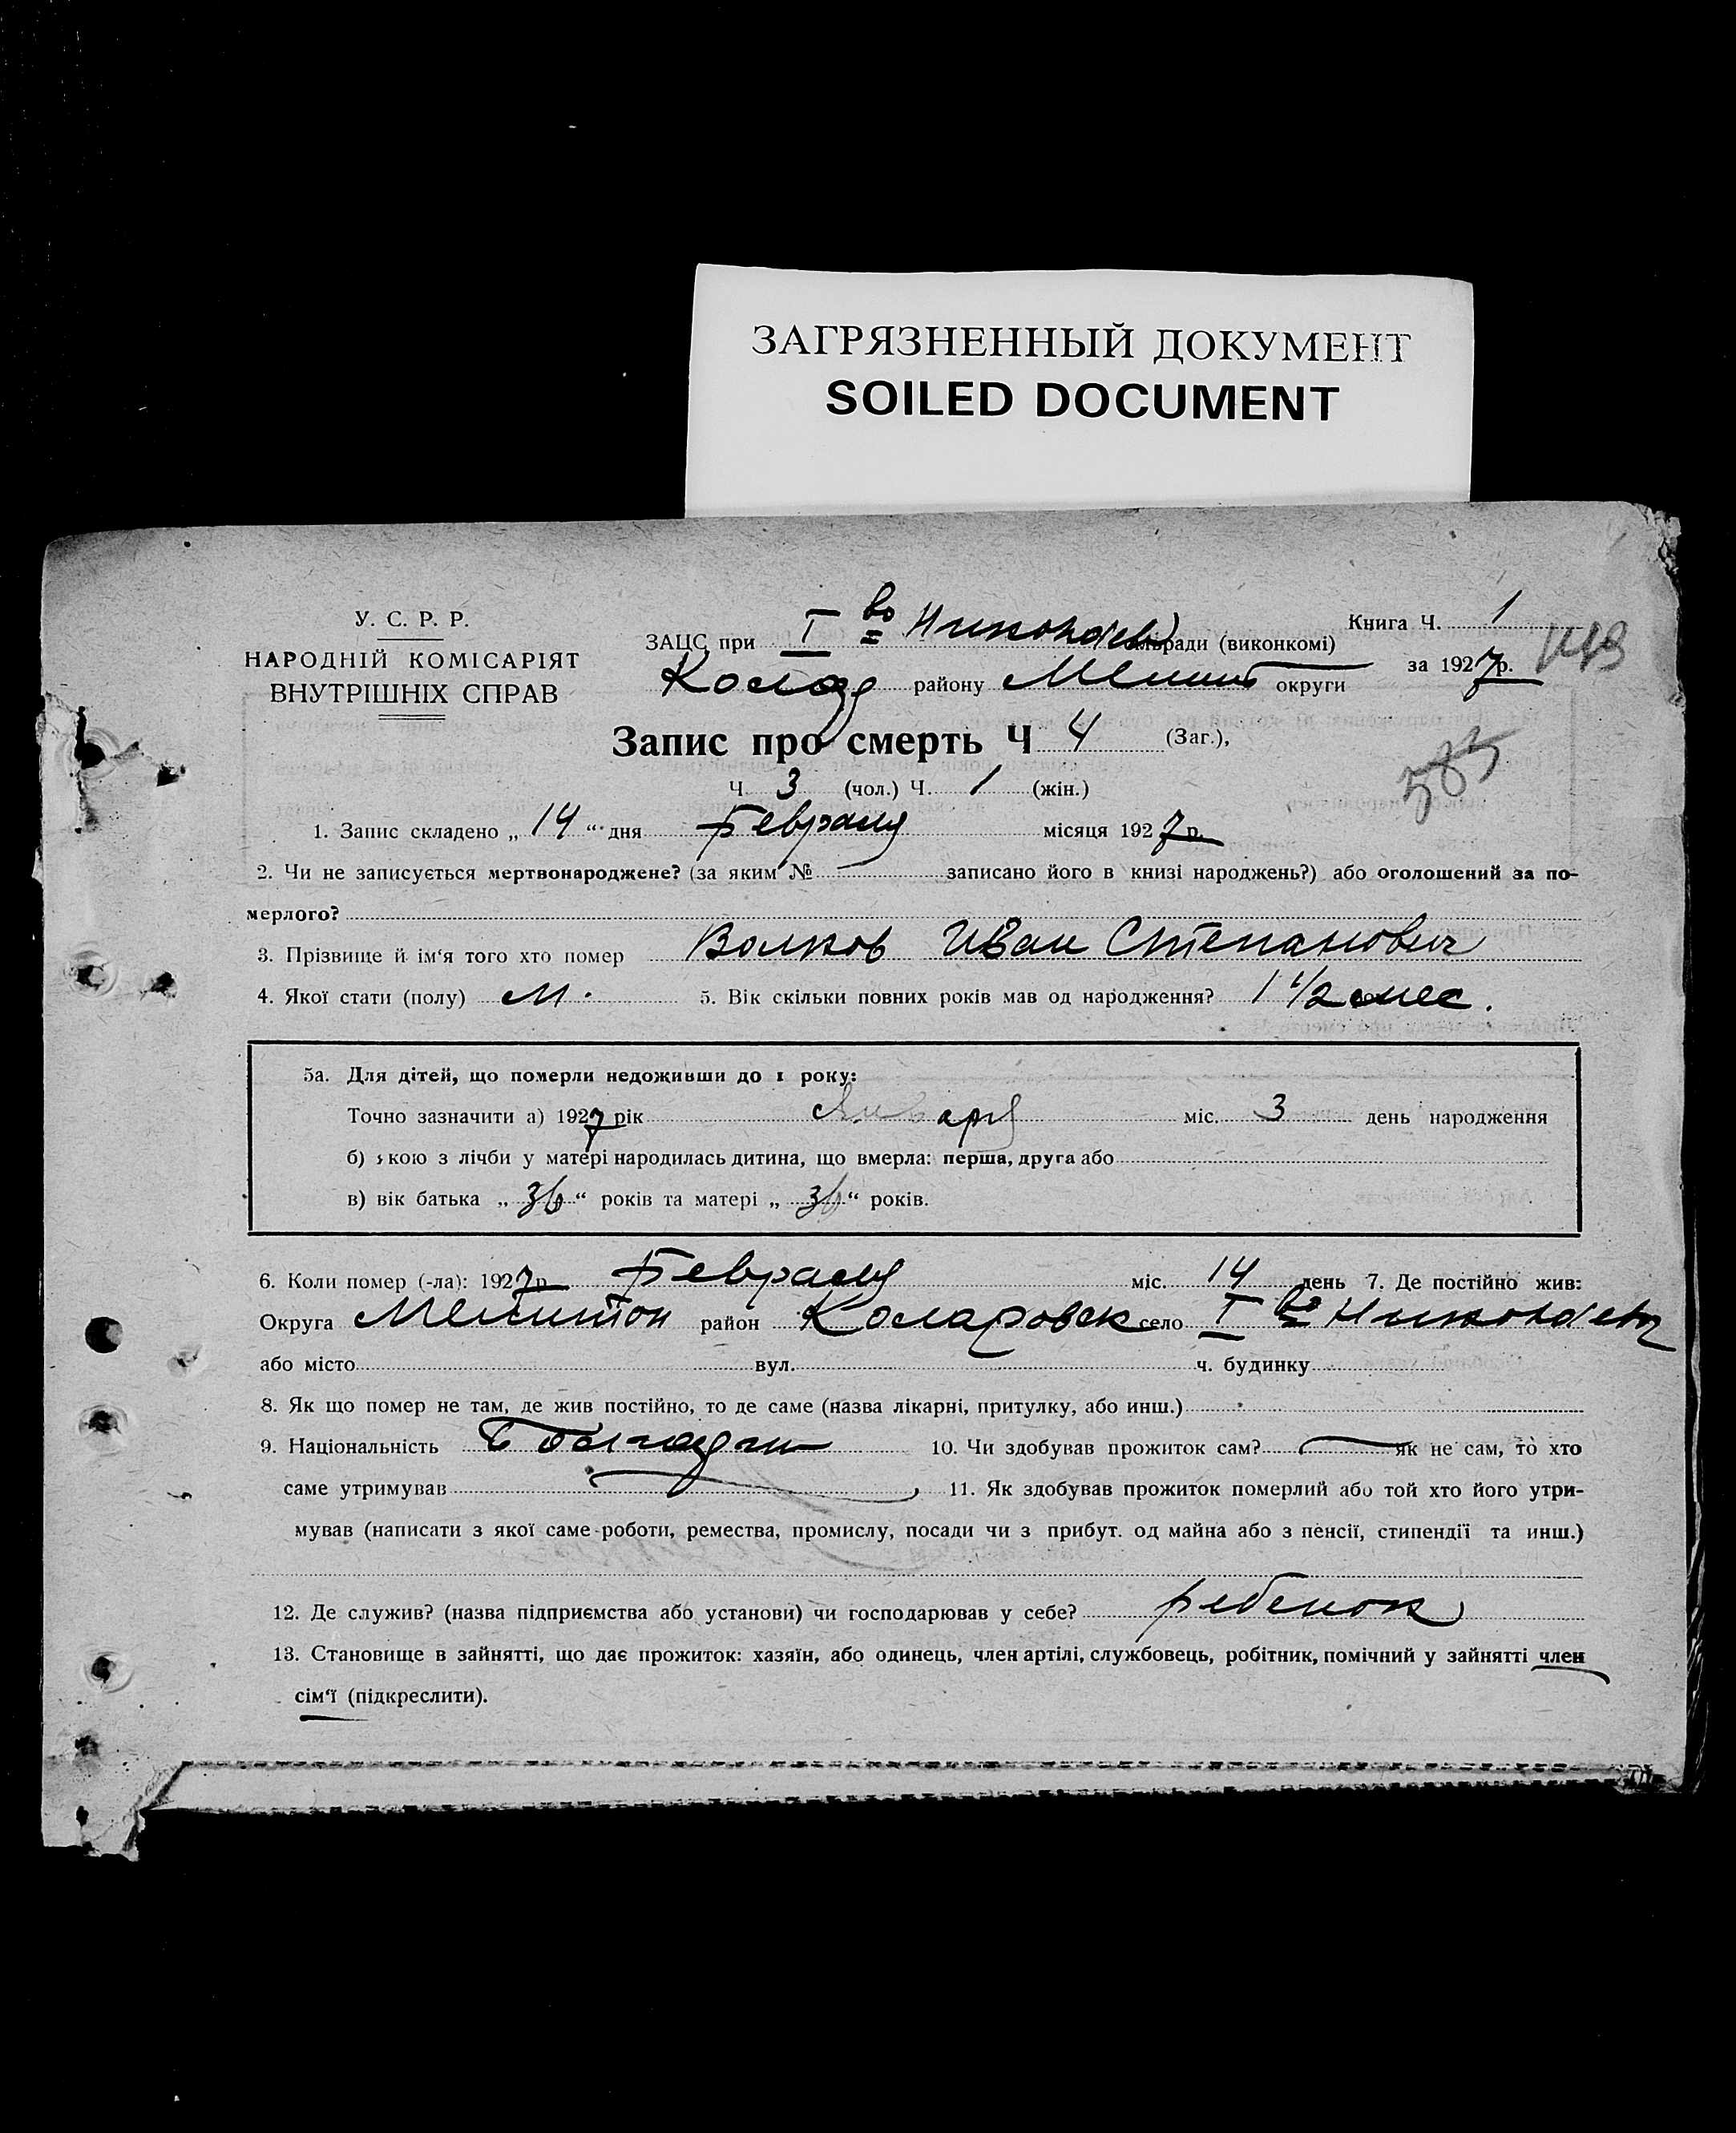 ЗАГРЯЗНЕННЫЙ ДОКУМЕНТ
SOILED DOCUMENT
У. С. Р. Р.
НАРОДНІЙ КОМІСАРІЯТ
ВНУТРІШНІХ СПРАВ
ЗАЦС при I во Николаев сільради (виконкомі)
Колар району Мелит округи
Книга Ч. 1
за 1927 р.
585
Запис про смерть Ч 4 (Заг.),
Ч 3 (чол.) Ч. 1 (жін.)
1. Запис складено „ 14 “ дня Февраля місяця 1927 р.
2. Чи не записується мертвонароджене? (за яким № записано його в книзі народжень?) або оголошений за по-
мерлого?
3. Прізвище й ім‘я того хто помер Волков Иван Степанович
4. Якої стати (полу) М. 5. Вік скільки повних років мав од народження? 1 1/2 мес.
5а. Для дітей, що померли недоживши до 1 року:
Точно зазначити а) 1927 рік Января міс. 3 день народження
б) якою з лічби у матері народилась дитина, що вмерла: перша, друга або
в) вік батька „ 36 “ років та матері „ 36 “ років.
6. Коли помер (-ла): 1927 р Февраля міс. 14 день 7. Де постійно жив:
Округа Мелитоп район Коларовск село I во Николаевка
або місто вул. ч. будинку
8. Як що помер не там, де жив постійно, то де саме (назва лікарні, притулку, або инш.)
9. Національність Болгарин 10. Чи здобував прожиток сам? — як не сам, то хто
саме утримував 11. Як здобував прожиток померлий або той хто його утри-
мував (написати з якої саме роботи, ремества, промислу, посади чи з прибут. од майна або з пенсії, стипендії та инш.)
12. Де служив? (назва підприємства або установи) чи господарював у себе? ребенок
13. Становище в зайнятті, що дає прожиток: хазяїн, або одинець, член артілі, службовець, робітник, помічний у зайнятті член
сім‘ї (підкреслити).